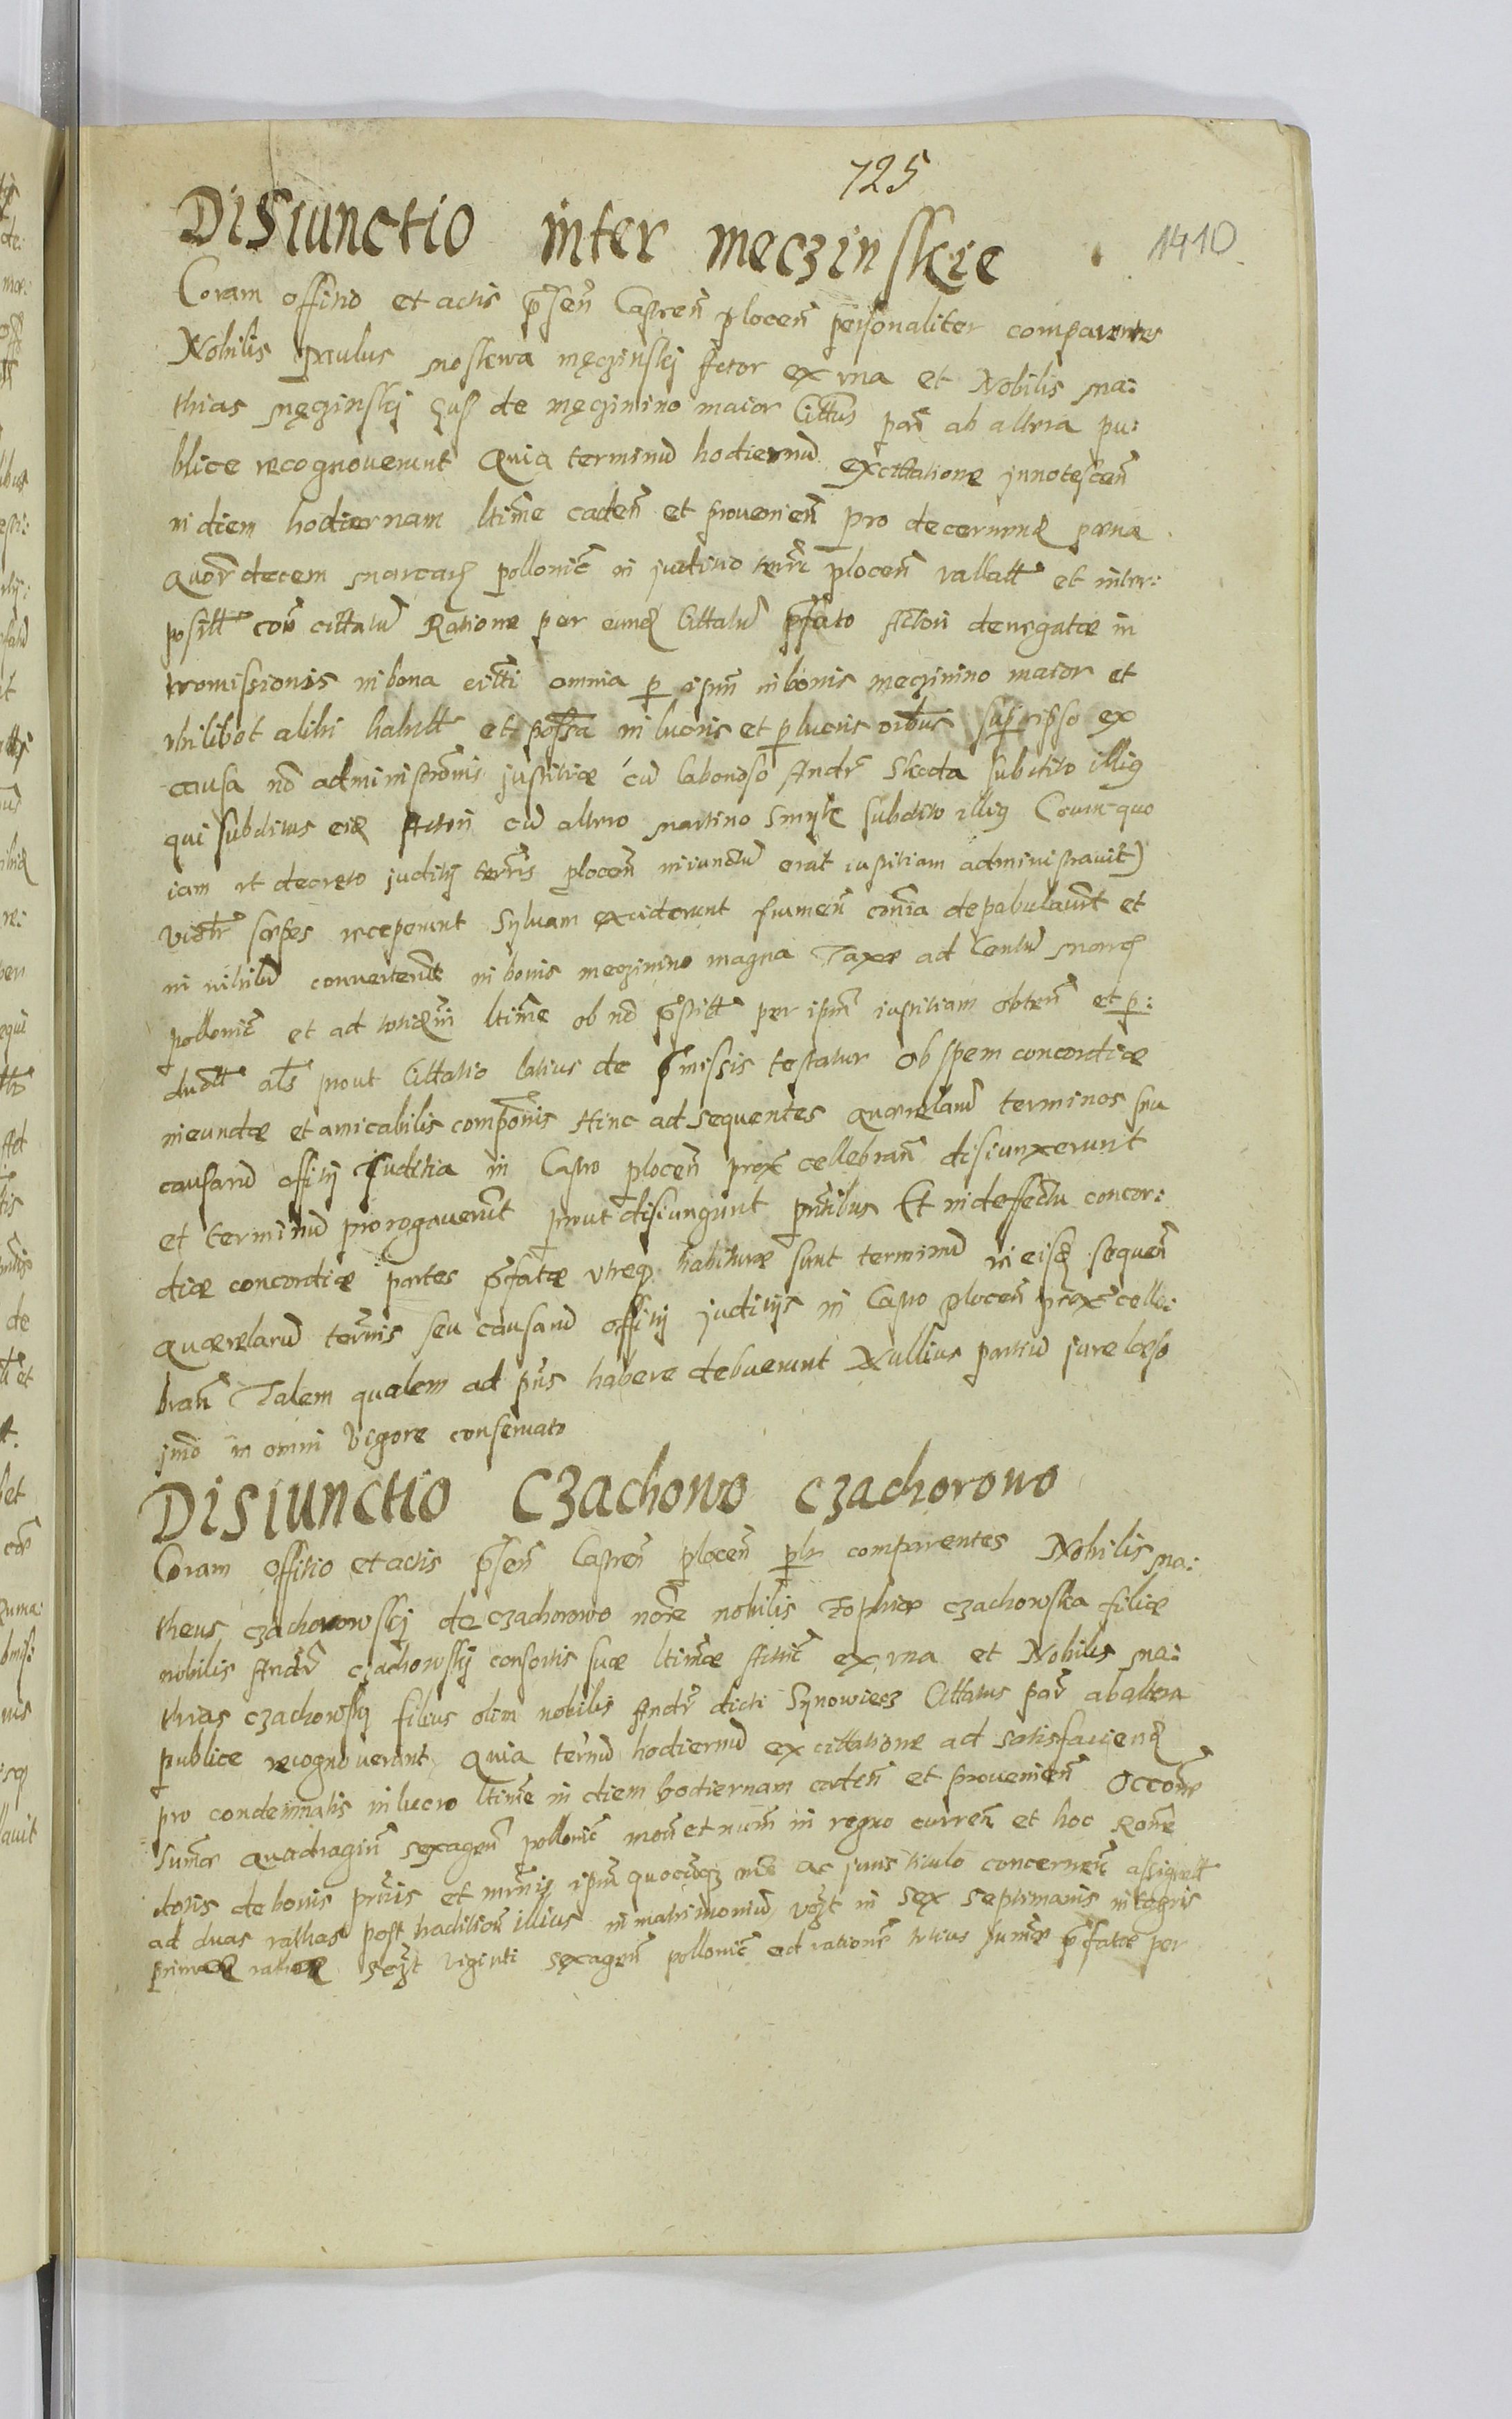 725
1410
Disiunctio inter meczinskie
Coram offitio et actis p̄sen̄ Castren̄ plocen̄ personaliter comparentes
Nobilis paulus moskwa męczinskj Actor ex vna et Nobilis Ma:
thias Męczinskj de męczinino maior Cittus par̄ ab altera pu:
blice recognouerunt Quia terminū hodiernū excittatione jnnotescen̄
in diem hodiernam ltime caden̄ et prouenien̄ pro decernend poena
quor̄ decem Marcar̄ pollonic̄ in juditio terr̄i plocen̄ vallatt̄ et inter:
positt̄ cōn cittatū Ratione per eund Cittatū p̄fato Actori denegatæ in
tromissionis in bona omnia p ipm̄ in bonis meczinino maior et
vbilibet alibi habitt̄ et possa in lucris et perlucris oibus ex
causa nō administrōnis justitiæ cū laborioso Andr̄ Skoda subdito illiq
qui subditus eid Actori cū altero Martino Smyk subdito illiq Cum quo
iam vt decreto juditij terr̄is plocen̄ iniunctū erat iustitiam administrauit)
sepes receperunt Syluam exciderunt frumen̄ omia depabulauer̄t et
in nihilū conuerterūt in bonis meczinino magna Taxæ ad Centū Marc̄
pollonic̄ et ad ltime ob nō p̄stitt̄ per ipm̄ iustitiam obten̄ et p:
ductt̄ als prout Cittatio latius de p̄missis testatur Ob spem concordiæ
ineundæ et amicabilis compōnis Hinc ad sequentes querelarū terminos seu
causarū offitij Juditia in Castro plocen̄ prox̄ cellebran̄ disiunxerunt
et terminū prorogauerūt prout disiungunt pn̄tibus Et in deffectu concor:
diæ concordiæ partes p̄fatæ vtreq habituræ sunt terminū in eisd sequen̄
querelarū term̄is seu causarū offitij juditijs in Castro plocen̄ prox̄ celle:
bran̄ Talem qualem ad pn̄s habere debuerunt Nullius partiū jure læso
jmō in omni Vigore conseruato
Disiunctio Czachowo czachorowo
Coram Offitio et actis p̄sen̄ Castren̄ plocen̄ plr comparentes Nobilis Ma:
theus czachorowskj de czachorowo nōie nobilis Zophiæ czachowska filiæ
nobilis Andr̄ czachowskj consortis suæ ltimæ Actric̄ ex vna et Nobilis Ma:
thias czachowskj filius olim nobilis Andr̄ dicti Synowiecz Cittatus par̄ ab altera
publice recognouerunt Quia ter̄nū hodiernū ex cittatione ad satisfaciend
pro condemnatis in lucro ltime in diem hodiernam caden̄ et prouenien̄ Occōne
Sum̄æ quadragin̄ sexagen̄ pollonic̄ mon̄ et num̄ in regno curren̄ et hoc Rōne
dotis de bonis pn̄is et mr̄nis ipm̄ quocūqz mō ac juris titulo concernen̄ assignatt̄
ad duas rathas post traditiōn illius in matrimoniū vczt in Sex Septimanis integris
primæ rathæ sczt viginti sexagen̄ pollonic̄ ad rationē totius sum̄æ p̄fatæ per